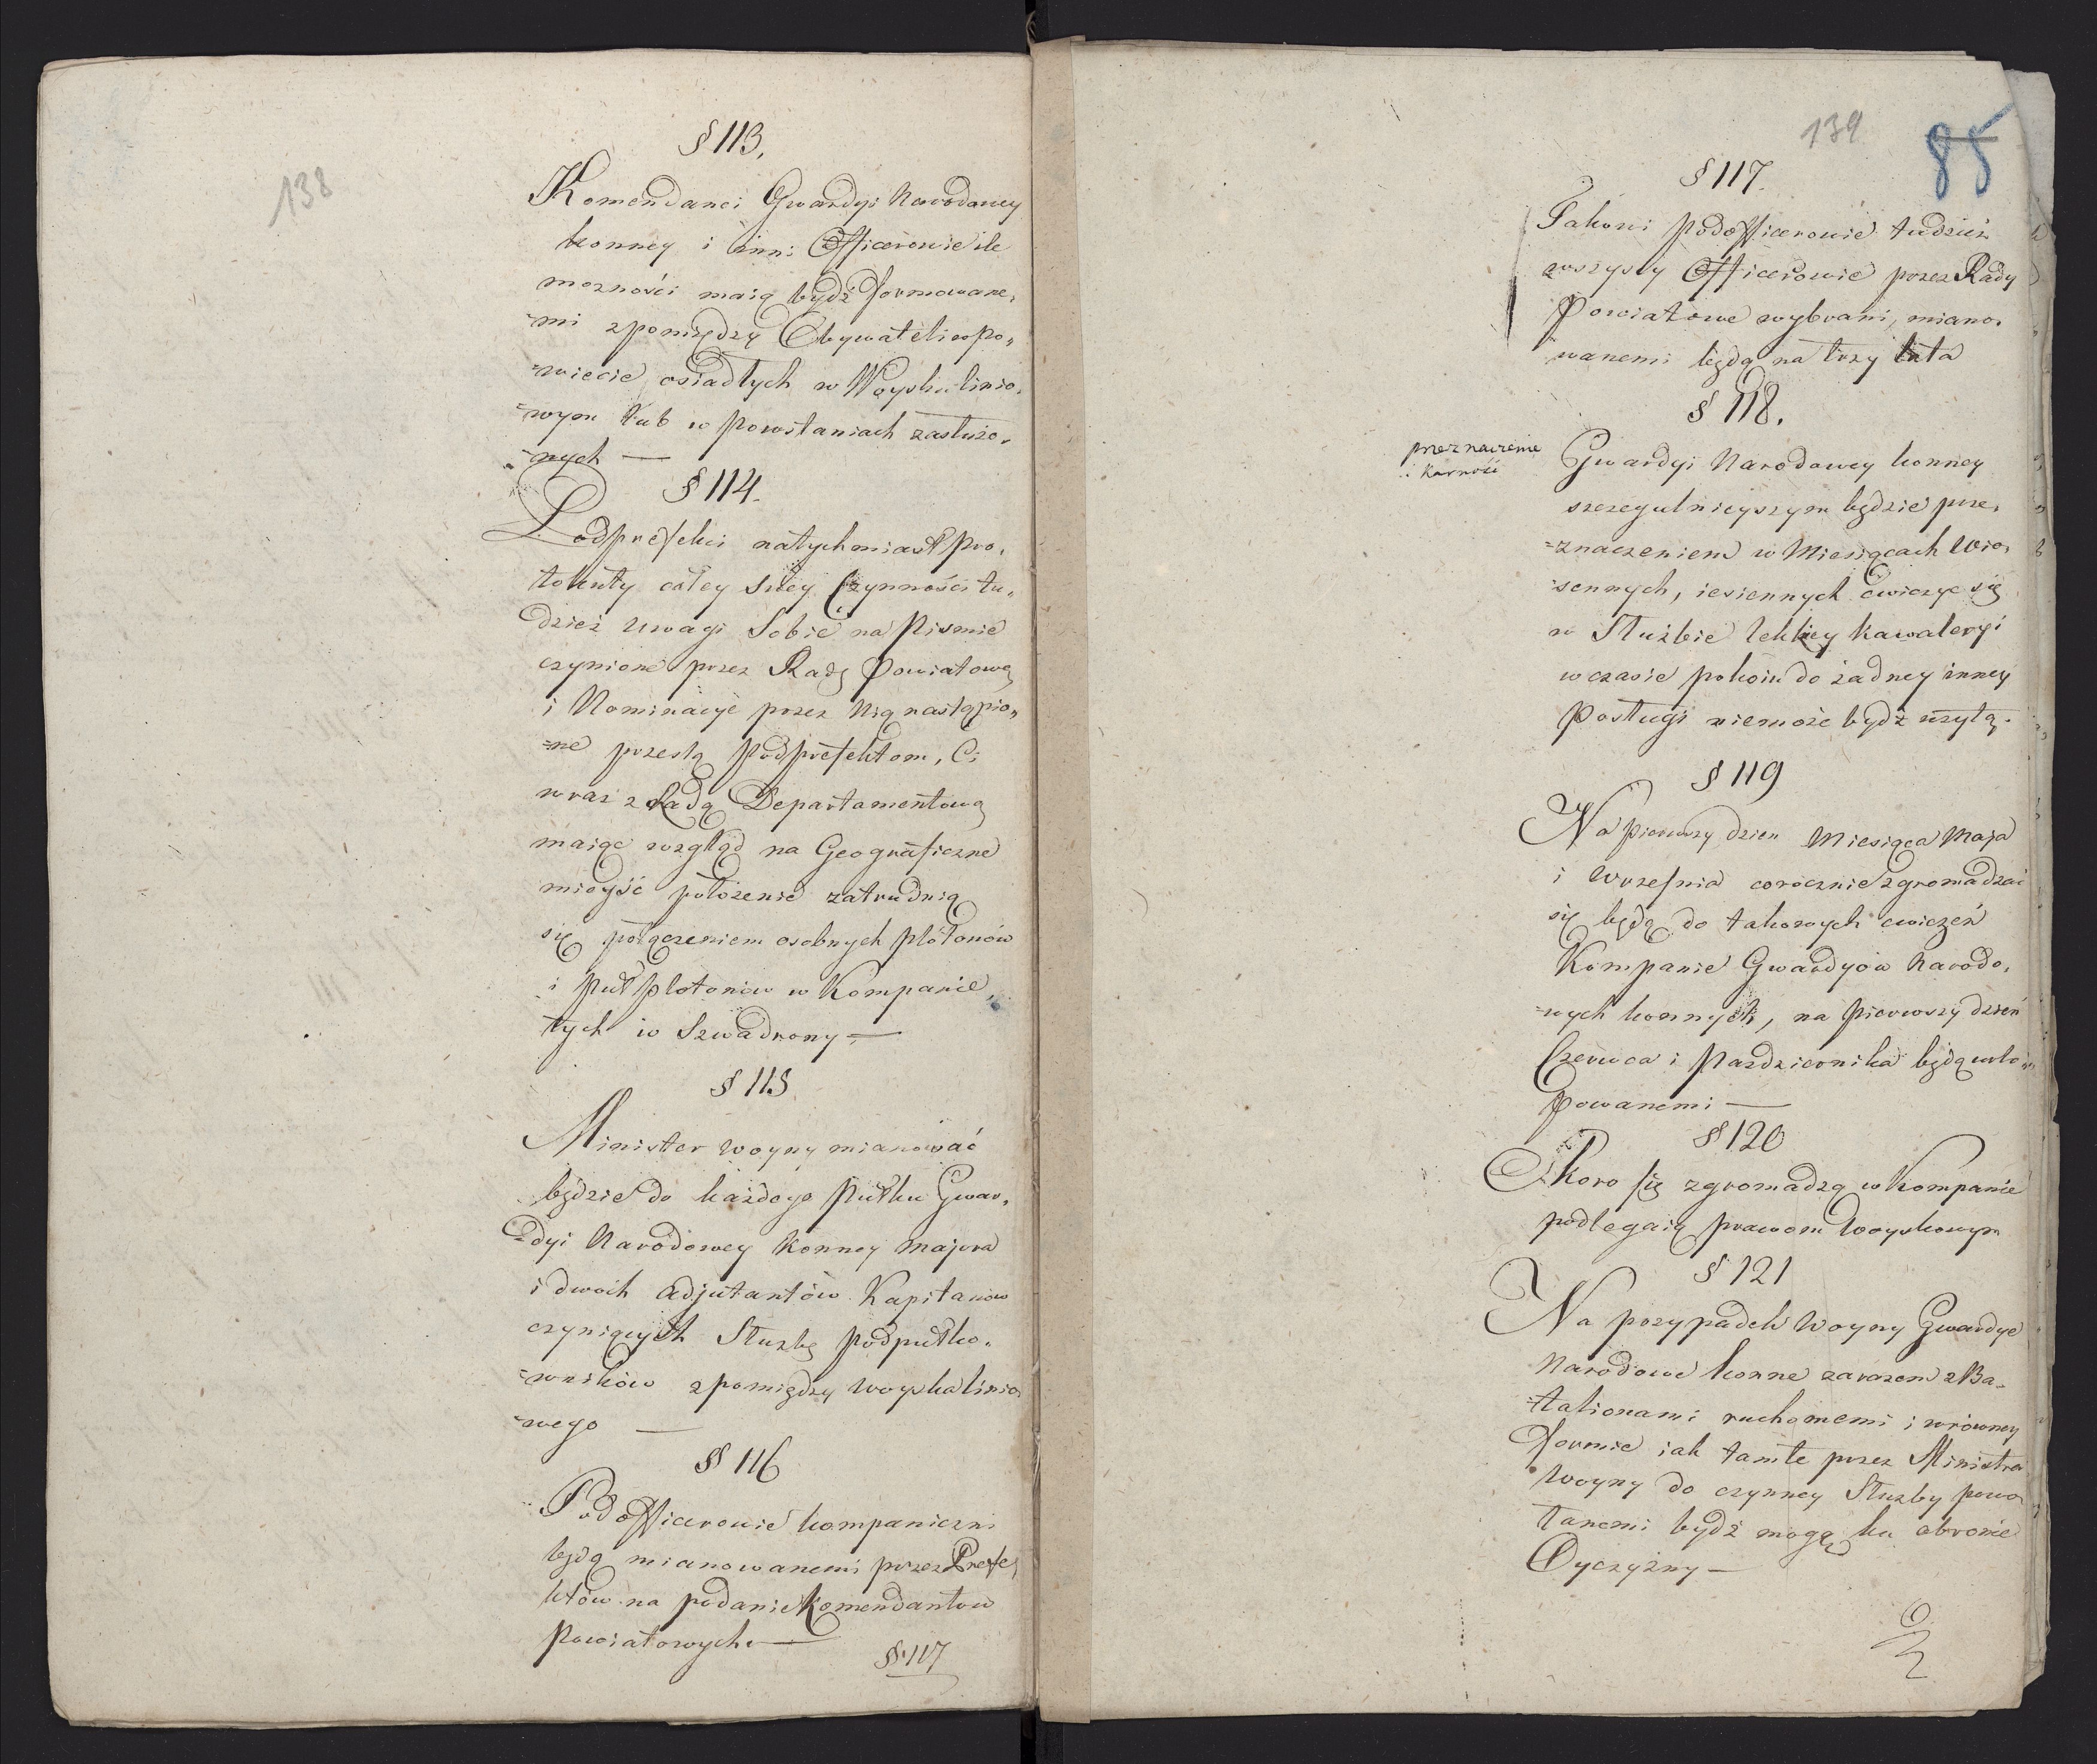 138
§ 113.
Komendanci Gwardyi Narodowey
konney i inni Officerowie ile
możności maią bydź formowane,
=mi zpomiędzy Obywateli w po„
=wiecie osiadłych w Woysku linio„
=wym lub w powstaniach zasłużo„
=nych —
§ 114.
Podprefekci natychmiast pro„
tokuły całey swey Czynności tu„
dzież uwagi Sobie na Pismie
czynione przez Radę Powiatową
i Nominacye przez Nią nastąpio„
=ne prześlą Podprefektom, Ci
wraz z Radą Departamentową
maiąc wzgląd na Geograficzne
mieysć położenie zatrudnią
się połączeniem osobnych plótonów
i Puł plotonów w Kompanie,
tych w Szwadrony —
§ 115
Minister woyny mianować
będzie do każdego Pułku Gwar„
=dyi Narodowey Konney Majora
i dwóch Adjutantów Kapitanów
czyniących Służbę podpułko„
=wników zpomiędzy woyska linio„
=wego —
§ 116
Podofficerowie kompaniczni
będą mianowanemi przez Prefe„
któw na podanie Komendantow
Powiatowych. —
§ 117
139
85
§ 117.
Takowi podofficerowie tudzież
wszyscy Officerowie przez Rady
Powiatowe wybrani, miano„
wanemi będą na trzy lata
§ 118.
przeznaczenie
i Karność
Gwardyi Narodowey konney
szczegulnieyszym będzie prze„
=znaczeniem w Miesiącach Wio„
=sennych, iesiennych ćwiczyc się
w Służbie lekkiey Kawaleryi
w czasie pokoiu do żadney inney
Posługi niemoże bydź użytą.
§ 119
Na pierwszy dzien Miesiąca Maja
i Wrzesnia corocznie zgromadzać
się będą do takowych cwiczeń
Kompanie Gwardyów Narodo„
=wych konnych, na pierwszy dzień
Czerwca i Pazdziernika będą urlo„
powanemi —
§ 120
Skoro się zgromadzą w Kompanie
podlegaią prawom Woyskowym
§ 121
Na przypadek Woyny Gwardye
Narodowe konne zarazem z Ba„
=talionami ruchomemi i wrówney
formie iak tamte przez Ministra
Woyny do czynney Służby powo„
łanemi bydź mogą ku obronie
Oyczyzny —